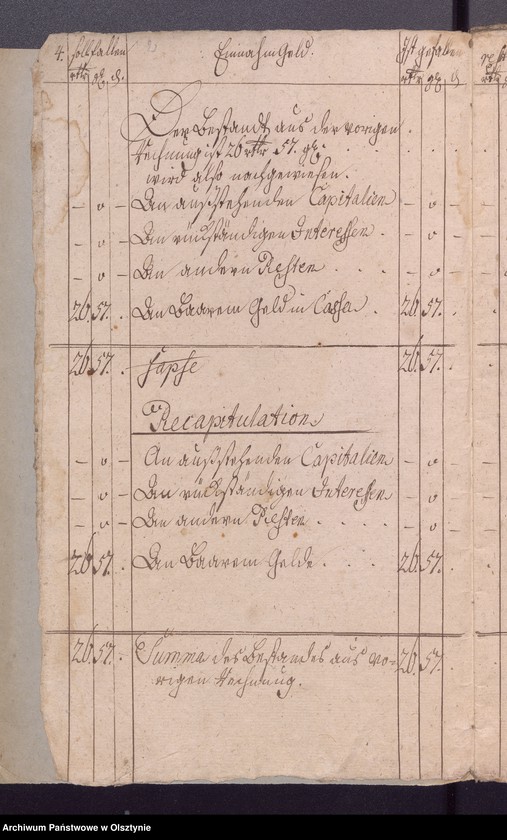 4. soll fallen Einnahm Geld. Ist gefallen
rthr gl. d. rthr gl. d
Der Bestandt aus der vorigen
Rechnung ist 26 rthr 57. gl.
wird also nachgewiesen.
– o – An außstehenden Capitalien – o
– o – An rückständigen Interessen – o
– o – An andern Resten – o
26. 57. An Baarem Geld in Cassa. 26. 57.
26. 57. 26. 57.
Recapitulation
– o – An außstehenden Capitalien – o
– o – An rückständigen Interessen – o
– o – An andern Resten – o
26 57. An Baarem Gelde. 26. 57.
26. 57. Summa des Bestandes aus vo- 26. 57.
rigen Rechnung.
Archiwum Państwowe w Olsztynie